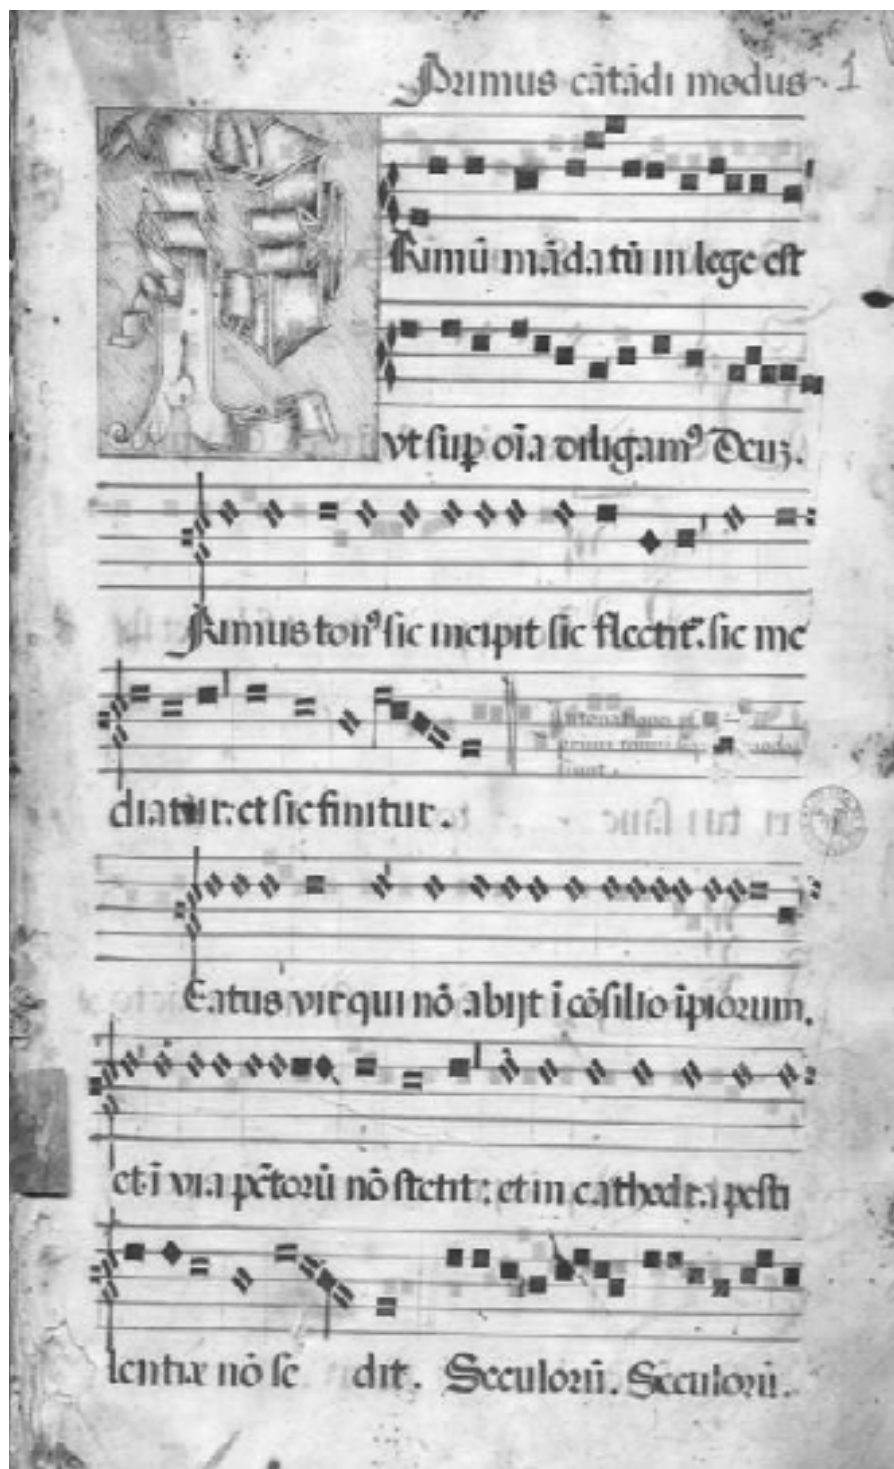 Primus cātādi modus 1
Rimū mādatū in lege est
vt sup oīa diligamꝰ Deuz.
Primus tonꝰ sic incipit sic flectit̄: sic me
diatur: et sic finitur.
Eatus vir qui nō abijt ī cōsilio īpiorum.
et ī via pc̄torū nō stetit: et in cathedra pesti
lentiæ nō se dit. Seculorū. Seculorū.